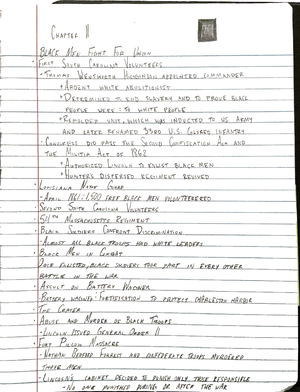 Chapter 11
Black Men Fight For Union
• First South Carolina Volunteers
• Thomas Wentworth Higginson appointed commander
* Ardent white abolitionist
* Determined to end slavery and to prove black
people were = to white people
* Remolded unit, which was inducted to US Army
and later renamed 33rd U.S. Colored Infantry
• Congress did pass the Second Confiscation Act and
the Militia Act of 1862
* Authorized Lincoln to enlist black men
* Hunters dispersed regiment revived
• Louisiana Native Guard
• April 1861: 1,500 free black men volunteered
• Second South Carolina Volunteers
• 54th Massachusetts Regiment
• Black Soldiers Confront Discrimination
• Almost all black troops had white leaders
• Black Men in Combat
Once enlisted, black soldiers took part in every other
battle in the war
• Assault on Battery Wagner
• Battery Wagner: Fortification to protect Charleston Harbor
• The Crater
• Abuse and Murder of Black Troops
• Lincoln issued General Order 11
• Fort Pillow Massacre
• Nathan Bedford Forrest and confederate troops murdered
these men
• Lincoln's cabinet decided to punish only those responsible
• No one punished during or after the war